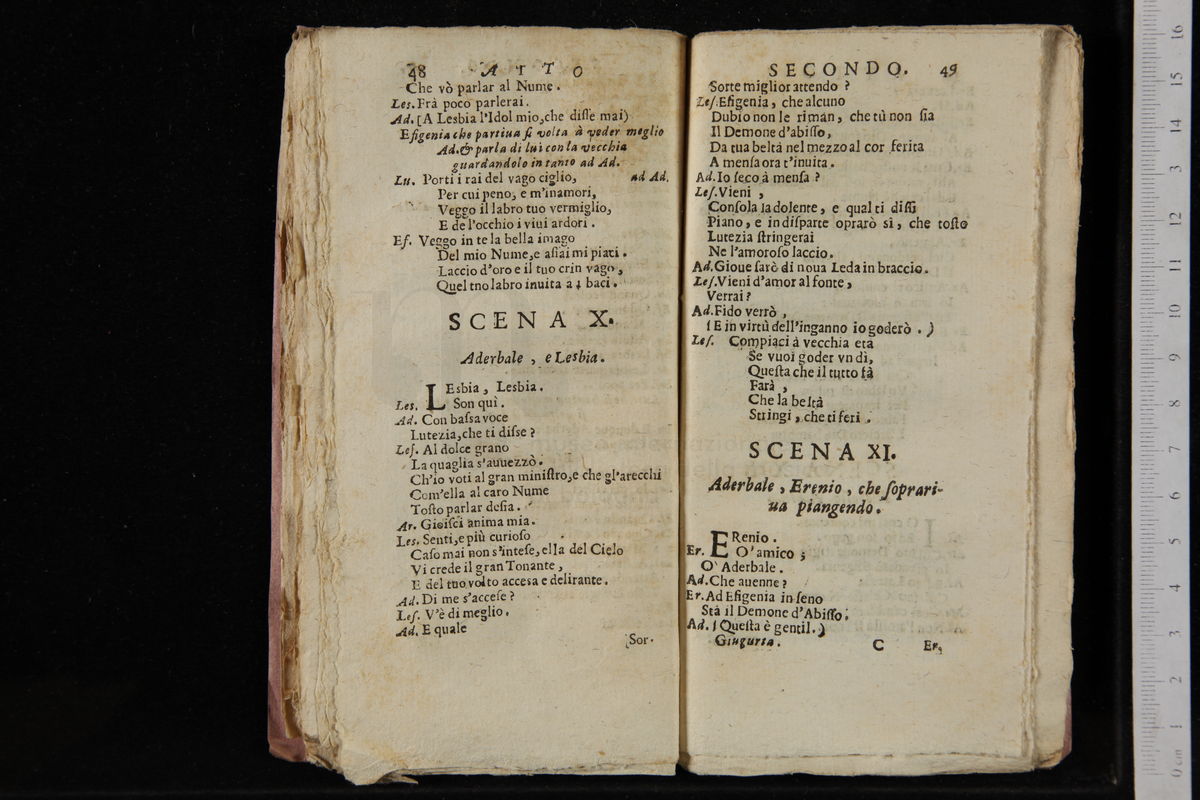 48 ATTO
Che vò parlar al Nume.
Les. Frà poco parlerai.
Ad. [A Lesbia l'Idol mio, che disse mai)
Efigenia che partiua si volta à veder meglio
Ad. & parla di lui con la vecchia
guardandolo in tanto ad Ad.
Lu. Porti i rai del vago ciglio, ad Ad.
Per cui peno, e m'inamori,
Veggo il labro tuo vermiglio,
E de l'occhio i viui ardori.
Ef. Veggo in te la bella imago
Del mio Nume, e assai mi piaci.
Laccio d'oro e il tuo crin vago,
Quel tno labro inuita a i baci.
SCENA X.
Aderbale, e Lesbia.
LEsbia, Lesbia.
Les. Son quì.
Ad. Con bassa voce
Lutezia, che ti disse?
Les. Al dolce grano
La quaglia s'auuezzò.
Ch'io voti al gran ministro, e che gl'arecchi
Com'ella al caro Nume
Tosto parlar desia.
Ar. Gioisci anima mia.
Les. Senti, e più curioso
Caso mai non s'intese, ella del Cielo
Vi crede il gran Tonante,
E del tuo volto accesa e delirante.
Ad. Di me s'accese?
Les. V'è di meglio.
Ad. E quale
Sor-
SECONDO. 49
Sorte miglior attendo?
Les. Efigenia, che alcuno
Dubio non le riman, che tù non sia
Il Demone d'abisso,
Da tua beltà nel mezzo al cor ferita
A mensa ora t'inuita.
Ad. Io seco à mensa?
Les. Vieni,
Consola la dolente, e qual ti dissi
Piano, e in disparte opraró si, che tosto
Lutezia stringerai
Ne l'amoroso laccio.
Ad. Gioue sarò di noua Leda in braccio.
Les. Vieni d'amor al fonte,
Verrai?
Ad. Fido verrò,
(E in virtù dell'inganno io goderò.)
Les. Compiaci à vecchia età
Se vuoi goder vn dì,
Questa che il tutto fà
Farà,
Che la beltà
Stringi, che ti ferì.
SCENA XI.
Aderbale, Erenio, che soprari-
ua piangendo.
ERenio.
Er. O' amico;
O' Aderbale.
Ad. Che auenne?
Er. Ad Efigenia in seno
Stà il Demone d'Abisso.
Ad. (Questa è gentil.)
Giugurta. C Er.